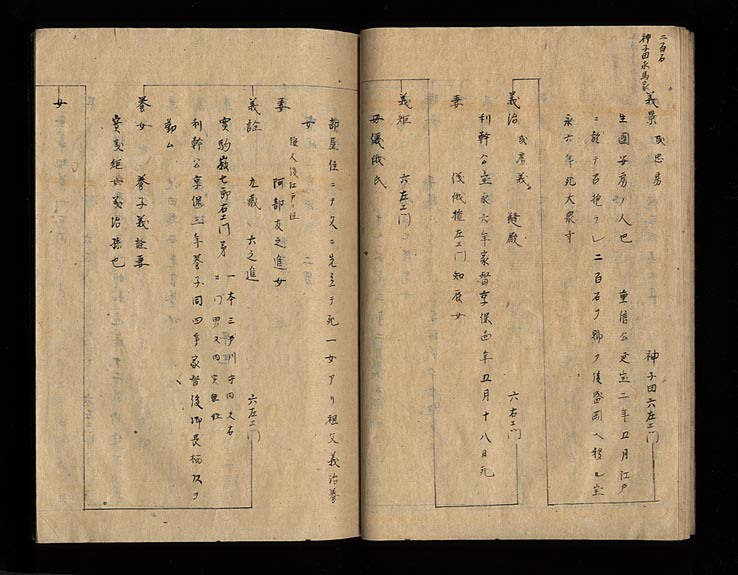 二百石
神子田永馬家
義景 或忠易 神子田六左エ門
生国安房ノ人也 重信公延宝二年五月江戸
ニ於テ召抱ラレ二百石ヲ賜ヲ後盛岡ヘ移ル宝
永六年死大泉寺
義治 或房義 縫殿 六右エ門
利幹公宝永六年家督享保四年五月十八日死
妻 儀俄権左エ門知辰女
義矩 六左エ門
母儀俄氏
部屋住ニテ父ニ先立テ死一女アリ祖父義治養
女
妻 阿部友之進女
後人後江戸ニ住
義詮 九蔵 六之進 六左エ門
実駒嶺七郎右エ門弟
利幹公享保三年養子同四年家督後御長柄頭ヲ
勤ム
養女 養子義詮妻
実義矩女義治孫也
女